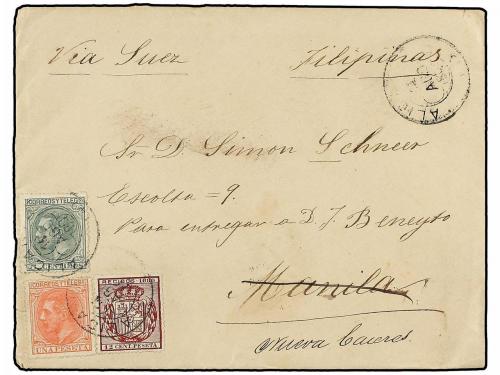 Via Suez Filipinas
Sr D. Simon Schneer
Escolta = 9.
Para entregar a D. J. Beneyto
Manila
Nueva Caceres.
CORREOS Y TELEGS
CORREOS Y TELEGS
UNA PESETA
RECIBOS
12 CENT. PESETA